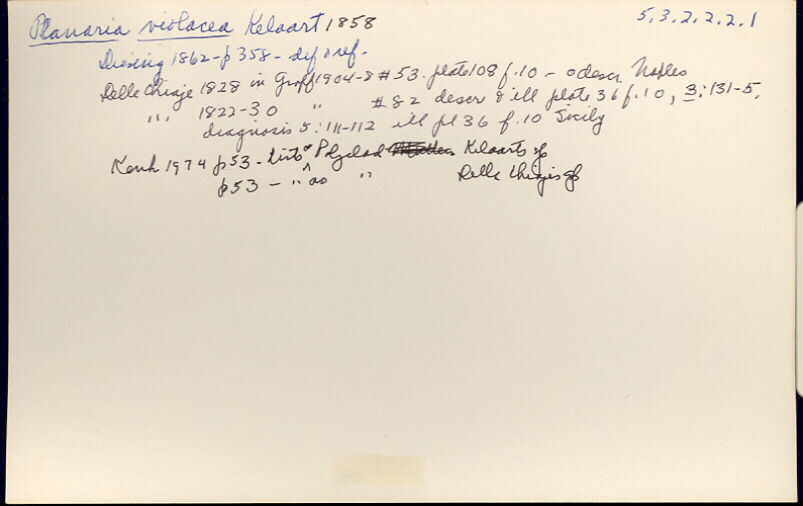 Planaria violacea Kelaart 1858 5.3.2.2.2.1
Diesing 1862-p 358- dif & ref.
Delle Chiaje 1828 in Graff 1904-8 # 53. plate 108 f.10 - o descr Naples
" " 1822-30 " # 82 descr & ill plate 36 f.10, 3:131-5.
diagnosis 5:111-112 ill pl 36 f.10 Sicily
Kenk 1974 p53 - Lists as Polyclad Kelaarts sp
p53 - " as " Delle Chiajes sp